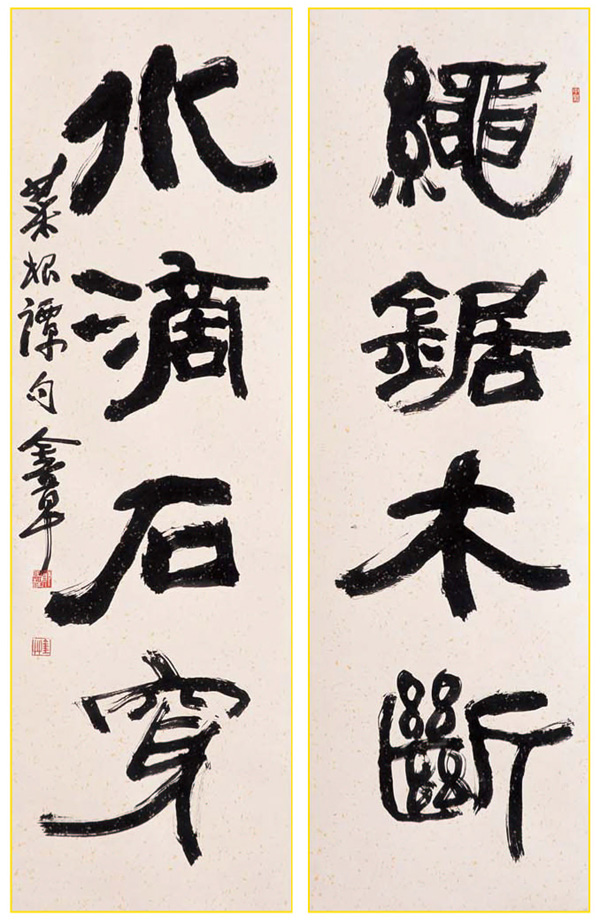 繩鋸木斷
水滴石穿
菜根譚句